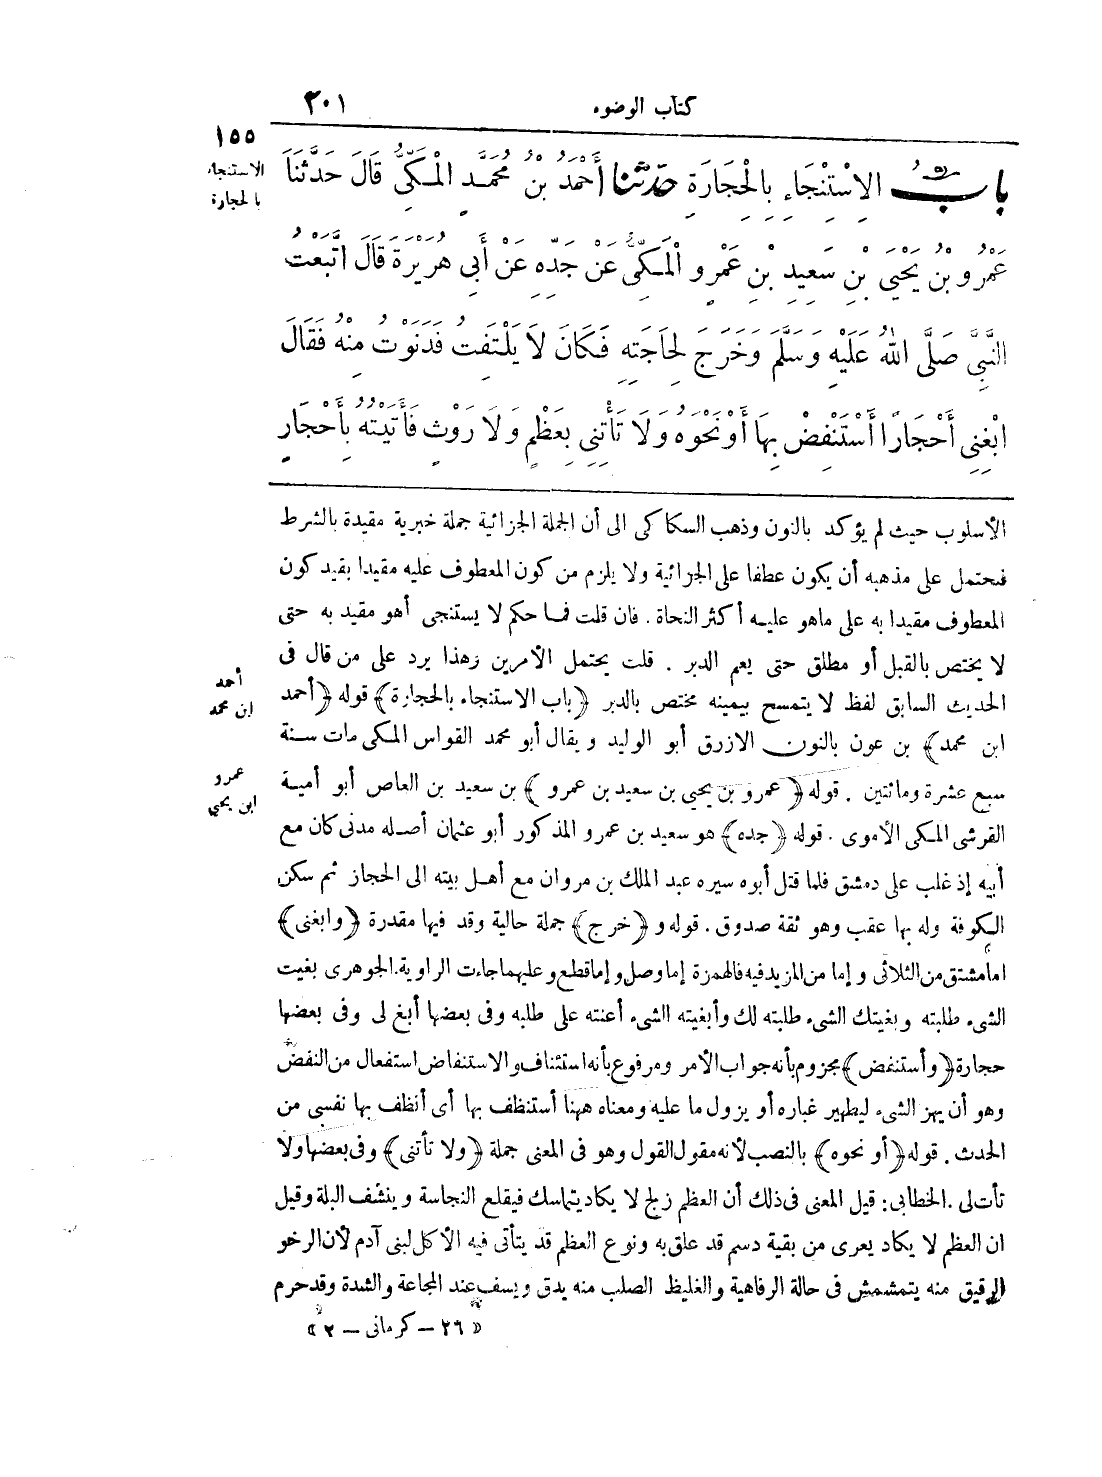 كتاب الوضوء ٢٠١
١٥٥
الاستنجاء
بالحجارة
بابُ الِاسْتِنْجَاءِ بِالْحِجَارَةِ حَدَّثَنَا أَحْمَدُ بْنُ مُحَمَّدٍ الْمَكِّيُّ قَالَ حَدَّثَنَا
عَمْرُو بْنُ يَحْيَى بْنِ سَعِيدِ بْنِ عَمْرٍو الْمَكِّيُّ عَنْ جَدِّهِ عَنْ أَبِي هُرَيْرَةَ قَالَ اتَّبَعْتُ
النَّبِيَّ صَلَّى اللهُ عَلَيْهِ وَسَلَّمَ وَخَرَجَ لِحَاجَتِهِ فَكَانَ لَا يَلْتَفِتُ فَدَنَوْتُ مِنْهُ فَقَالَ
ابْغِنِي أَحْجَارًا أَسْتَنْفِضْ بِهَا أَوْ نَحْوَهُ وَلَا تَأْتِنِي بِعَظْمٍ وَلَا رَوْثٍ فَأَتَيْتُهُ بِأَحْجَارٍ
الأسلوب حيث لم يؤكد بالنون وذهب السكاكى الى أن الجملة الجزائية جملة خبرية مقيدة بالشرط
فيحتمل على مذهبه أن يكون عطفا على الجزائية ولا يلزم من كون المعطوف عليه مقيدا بقيد كون
المعطوف مقيدا به على ماهو عليه أكثر النحاة. فان قلت فما حكم لا يستنجى أهو مقيد به حتى
لا يختص بالقبل أو مطلق حتى يعم الدبر. قلت يحتمل الأمرين وهذا يرد على من قال فى
الحديث السابق لفظ لا يتمسح بيمينه مختص بالدبر ﴿باب الاستنجاء بالحجارة﴾ قوله ﴿أحمد
ابن محمد﴾ بن عون بالنون الازرق أبو الوليد ويقال أبو محمد القواس المكى مات سنة
سبع عشرة ومائتين. قوله ﴿عمرو بن يحيى بن سعيد بن عمرو﴾ بن سعيد بن العاص أبو أمية
القرشى المكى الأموى. قوله ﴿جده﴾ هو سعيد بن عمرو المذكور أبو عثمان أصله مدنى كان مع
أبيه إذ غلب على دمشق فلما قتل أبوه سيره عبد الملك بن مروان مع أهل بيته الى الحجاز ثم سكن
الكوفة وله بها عقب وهو ثقة صدوق. قوله و﴿خرج﴾ جملة حالية وقد فيها مقدرة ﴿وابغنى﴾
امامشتق من الثلاثى وإما من المزيد فيه فالهمزة إما وصل وإما قطع وعليهما جاءت الراوية. الجوهرى بغيت
الشىء طلبته وبغيتك الشىء طلبته لك وأبغيته الشىء أعنته على طلبه وفى بعضها أبغ لى وفى بعضها
حجارة ﴿وأستنفض﴾ مجزوم بأنه جواب الأمر ومرفوع بأنه استئناف والاستنفاض استفعال من النفض
وهو أن يهز الشىء ليطهير غباره أو يزول ما عليه ومعناه ههنا أستنظف بها أى أنظف بها نفسى من
الحدث. قوله ﴿أو نحوه﴾ بالنصب لأنه مقول القول وهو فى المعنى جملة ﴿ولا تأتنى﴾ وفى بعضها ولا
تأت لى. الخطابى: قيل المعنى فى ذلك أن العظم زلج لا يكاد يتماسك فيقلع النجاسة وينشف البلة وقيل
ان العظم لا يكاد يعرى من بقية دسم قد علق به ونوع العظم قد يتأتى فيه الأكل لبنى آدم لأن الرخو
الرقيق منه يتمشمش فى حالة الرفاهية والغليظ الصلب منه يدق ويسف عند المجاعة والشدة وقد حرم
أحمد
ابن محمد
عمرو
ابن يحيى
«٢٦ – كرمانى – ٢»